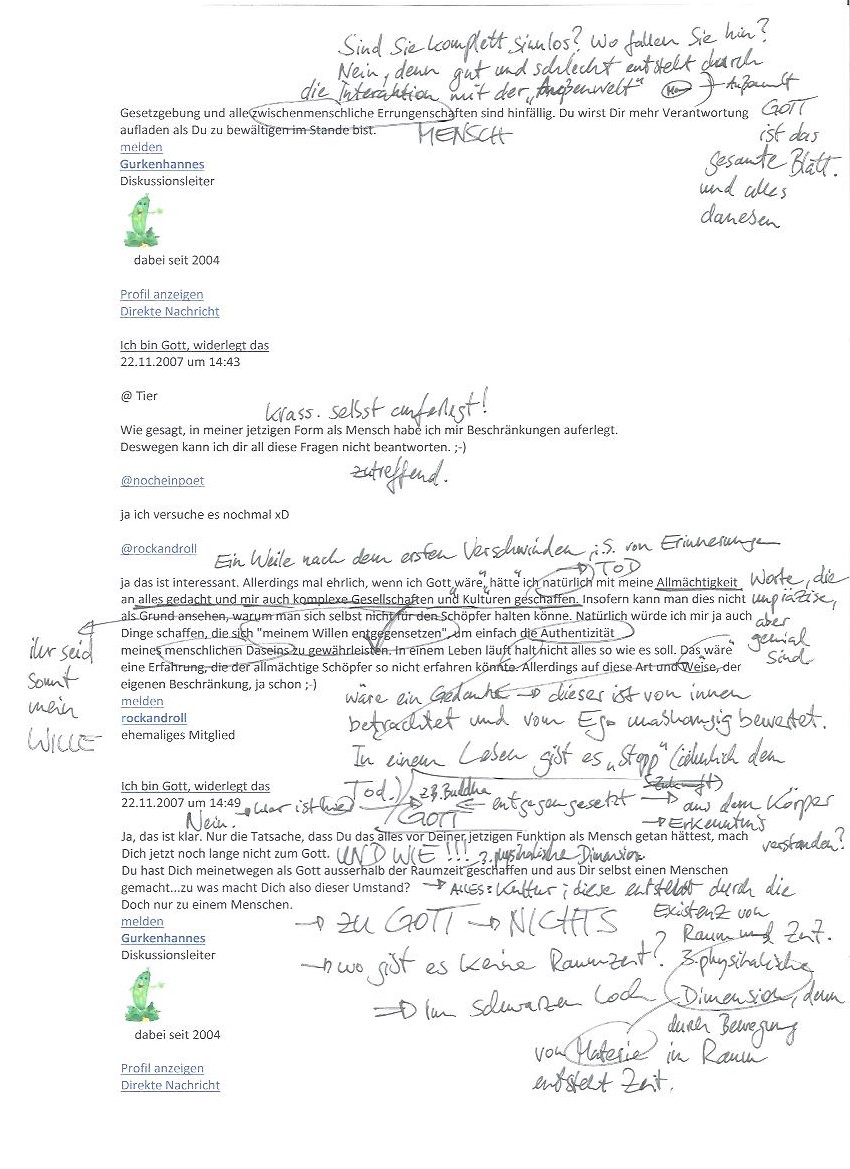 Sind Sie komplett sinnlos? Wo fallen Sie hin?
Nein, denn gut und schlecht entsteht durch
die Interaktion mit der „Außenwelt"
Gesetzgebung und alle zwischenmenschliche Errungenschaften sind hinfällig. Du wirst Dir mehr Verantwortung
aufladen als Du zu bewältigen im Stande bist.
MENSCH
GOTT
ist das
gesamte Blatt.
und alles
melden
Gurkenhannes
Diskussionsleiter
dabei seit 2004
Profil anzeigen
Direkte Nachricht
Ich bin Gott, widerlegt das
22.11.2007 um 14:43
@ Tier
krass. selbst auferlegt!
Wie gesagt, in meiner jetzigen Form als Mensch habe ich mir Beschränkungen auferlegt.
Deswegen kann ich dir all diese Fragen nicht beantworten. ;-)
zutreffend.
@nocheinpoet
ja ich versuche es nochmal xD
@rockandroll
Ein Weile nach dem ersten Verschwinden i.S. von Erinnerungen
TOD
ja das ist interessant. Allerdings mal ehrlich, wenn ich Gott wäre, hätte ich natürlich mit meine Allmächtigkeit
an alles gedacht und mir auch komplexe Gesellschaften und Kulturen geschaffen. Insofern kann man dies nicht
als Grund ansehen, warum man sich selbst nicht für den Schöpfer halten könne. Natürlich würde ich mir ja auch
Dinge schaffen, die sich "meinem Willen entgegensetzen", um einfach die Authentizität
meines menschlichen Daseins zu gewährleisten. In einem Leben läuft halt nicht alles so wie es soll. Das wäre
eine Erfahrung, die der allmächtige Schöpfer so nicht erfahren könnte. Allerdings auf diese Art und Weise, der
eigenen Beschränkung, ja schon ;-)
Worte, die
unpräzise,
aber
genial
sind
ihr seid
somit
mein
WILLE
melden
rockandroll
ehemaliges Mitglied
wäre ein Gedanke → dieser ist von innen
betrachtet und vom Ego unabhängig bewertet.
In einem Leben gibt es „Stopp" (ähnlich dem
Tod.)
Ich bin Gott, widerlegt das
22.11.2007 um 14:49
wer ist hier
z.B. Buddha
GOTT
entgegengesetzt → aus dem Körper
→ Erkenntnis
verstanden?
Nein.
Ja, das ist klar. Nur die Tatsache, dass Du das alles vor Deiner jetzigen Funktion als Mensch getan hättest, mach
Dich jetzt noch lange nicht zum Gott.
UND WIE!!! 3. physikalische Dimension
Du hast Dich meinetwegen als Gott ausserhalb der Raumzeit geschaffen und aus Dir selbst einen Menschen
gemacht...zu was macht Dich also dieser Umstand?
→ ALLES: Kultur; diese entsteht durch die
Existenz von
Raum und Zeit.
Doch nur zu einem Menschen.
→ ZU GOTT → NICHTS
melden
Gurkenhannes
Diskussionsleiter
→ wo gibt es keine Raumzeit?
⇒ Im schwarzen Loch
3. physikalische
Dimension, denn
durch Bewegung
von Materie in Raum
entsteht Zeit.
dabei seit 2004
Profil anzeigen
Direkte Nachricht